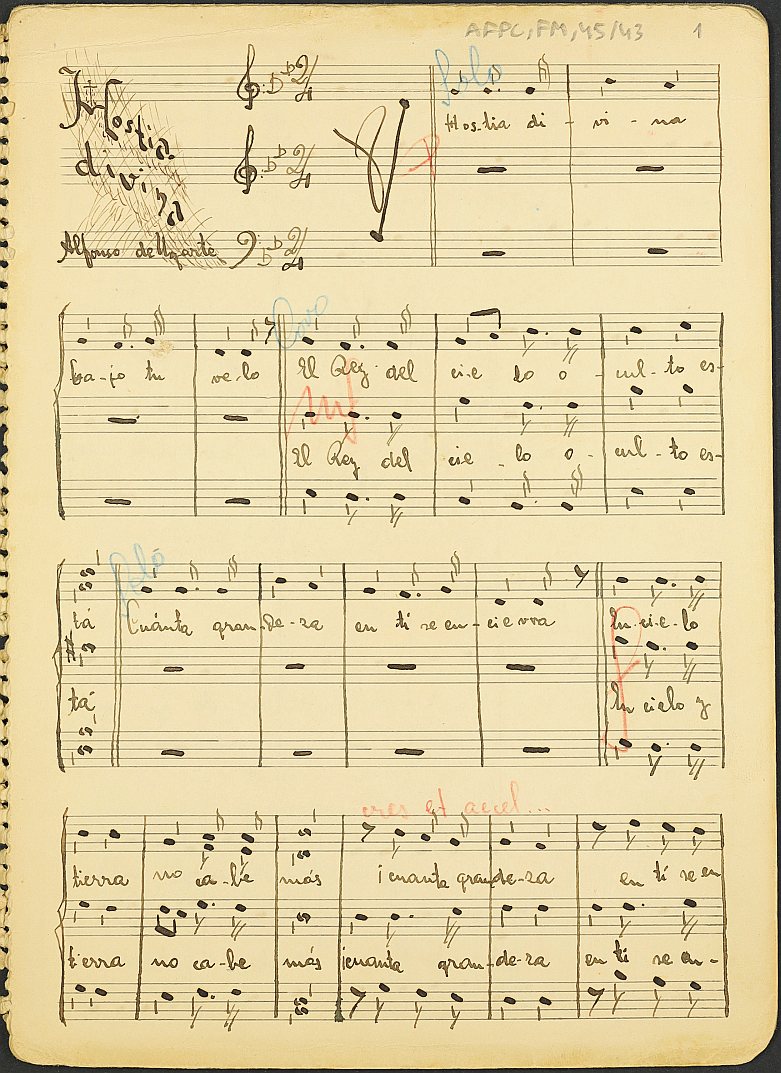 AFPC,FM,45/43 1
Hostia
divina
Alfonso de Ugarte
2/4
2/4
2/4
Solo
Hos-tia di - vi - na
Coro
ba-jo tu ve-lo El Rey del cie lo o - cul-to es-
mf
El Rey del cie - lo o - cul - to es-
Solo
tá Cuánta gran-de-za en ti se en-cie rra En cie-lo
f
tá En cielo y
cres et accel...
tierra no ca-be más ¡cuanta grande-za en ti se en
tierra no ca-be más ¡cuanta gran-de-za en ti se en-